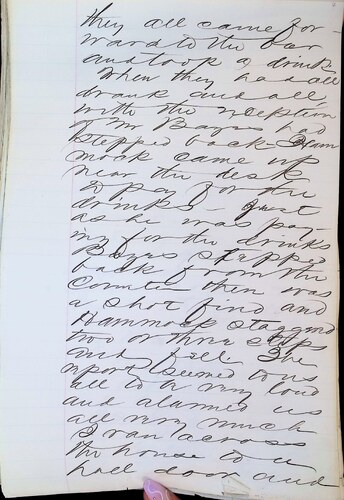 they all came for-
ward to the bar
and took a drink
When they had all
drank and all,
with the exception
of Mr Bayes had
stepped back- Ham
mock came up
near the desk
to pay for the
drinks - Just
as he was pay-
ing for the drinks
Bayes stepped
back from the
counter then was
a shot fired and
Hammock staggerd
two or three steps
and fell. The
report seemed to us
all to be very loud
and alarmed us
all very much
I ran across
the house to a
hall door and